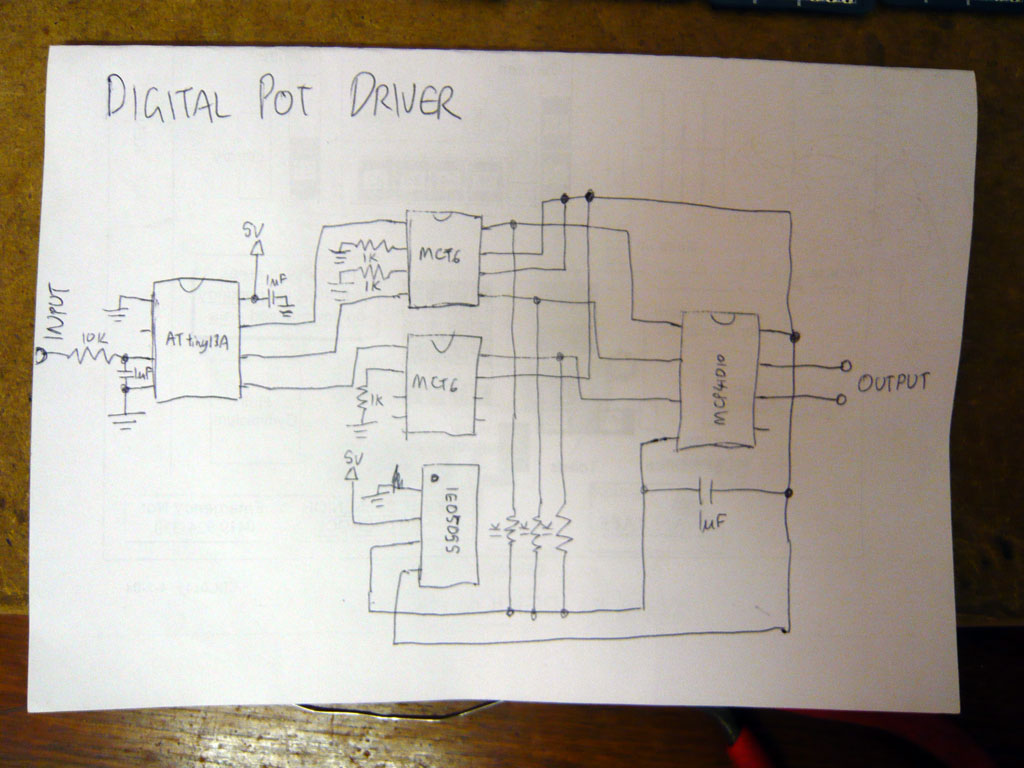 DIGITAL POT DRIVER
5V
1µF
INPUT
10K
1µF
ATtiny13A
1K
1K
MCT6
MCT6
1K
5V
IE0505S
1K
1K
1K
MCP41010
1µF
OUTPUT